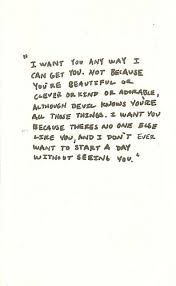 "
I WANT YOU ANY WAY I
CAN GET YOU. NOT BECAUSE
YOU'RE BEAUTIFUL OR
CLEVER OR KIND OR ADORABLE,
ALTHOUGH DEVIL KNOWS YOU'RE
ALL THOSE THINGS. I WANT YOU
BECAUSE THERES NO ONE ELSE
LIKE YOU, AND I DON'T EVER
WANT TO START A DAY
WITHOUT SEEING YOU."